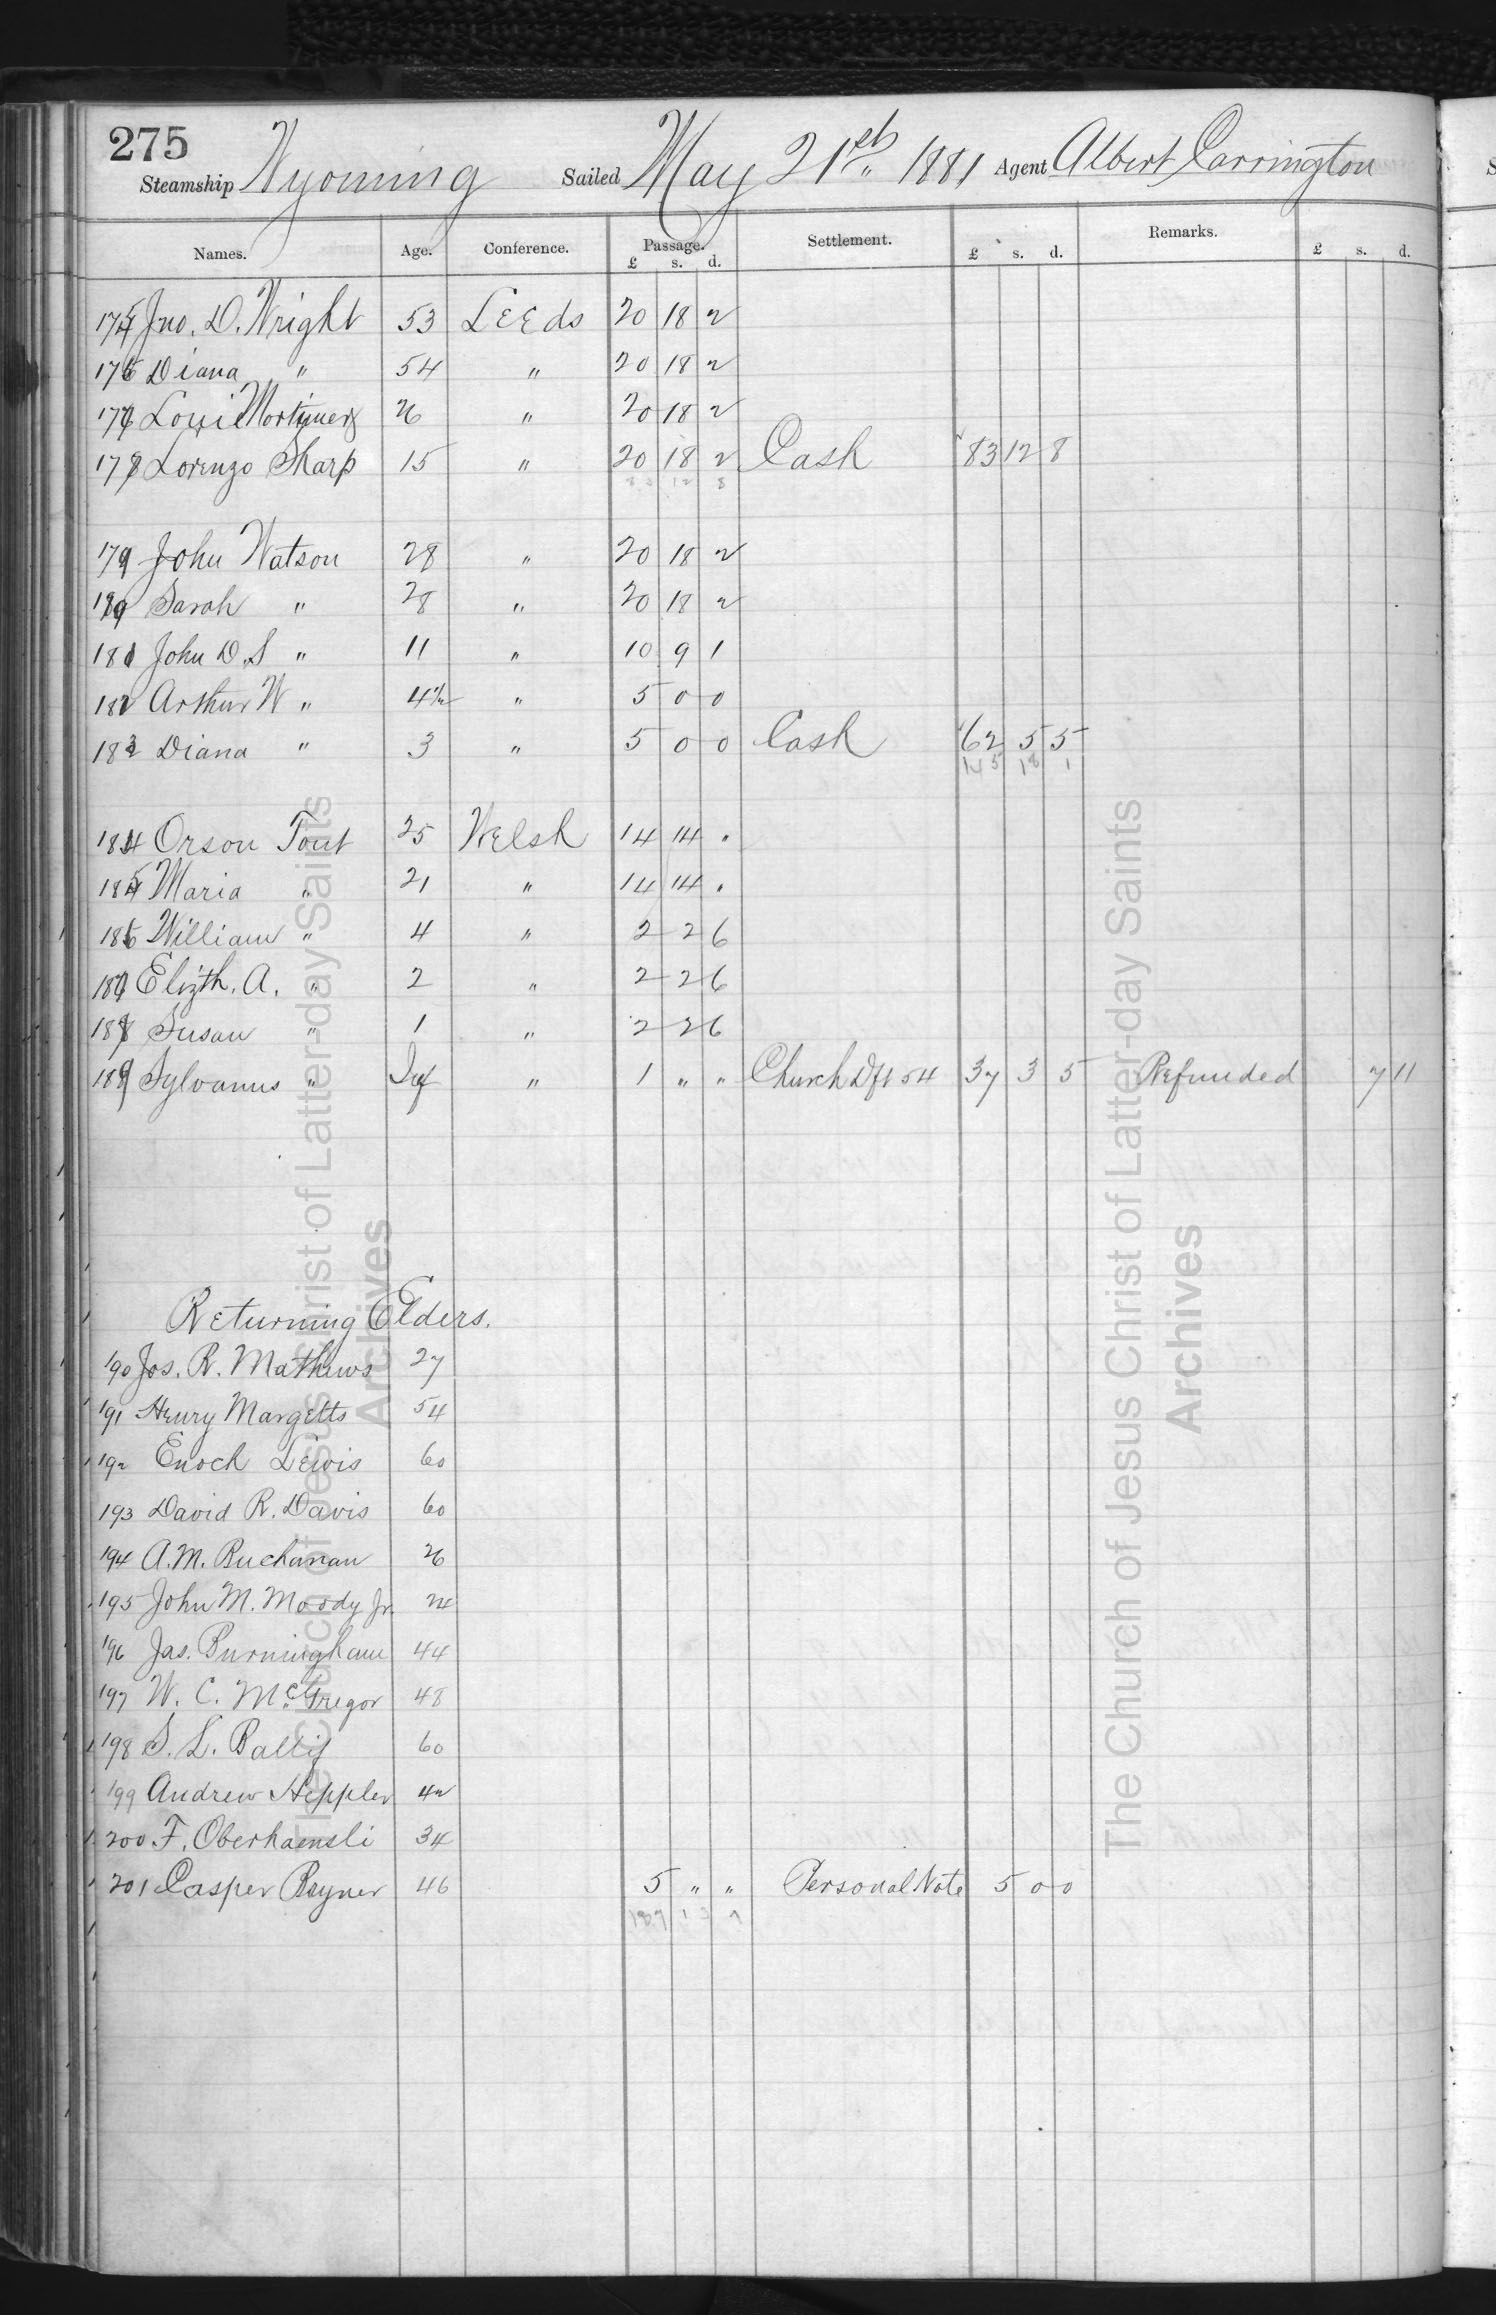 275
Steamship Wyoming Sailed May 21st 1881 Agent Albert Carrington
Names. Age. Conference. Passage. £ s. d. Settlement. £ s. d. Remarks. £ s. d.
175 Jno. D. Wright 53 Leeds 20 18 2
176 Diana " 54 " 20 18 2
177 Loui Mortimer 26 " 20 18 2
178 Lorenzo Sharp 15 " 20 18 2 Cash 83 12 8
83 12 8
179 John Watson 28 " 20 18 2
180 Sarah " 28 " 20 18 2
181 John D. S " 11 " 10 9 1
182 Arthur W " 4½ " 5 0 0
183 Diana " 3 " 5 0 0 Cash 62 5 5
145 18 1
184 Orson Tout 25 Welsh 14 14 "
185 Maria " 21 " 14 14 "
186 William " 4 " 2 2 6
187 Elizth. A. " 2 " 2 2 6
188 Susan " 1 " 2 2 6
189 Sylvanus " Inf " 1 " " Church Dft 54 37 3 5 Refunded 7 11
Returning Elders.
190 Jos. R. Mathews 27
191 Henry Margetts 54
192 Enoch Lewis 60
193 David R. Davis 60
194 A. M. Buchanan 26
195 John M. Moody Jr. 24
196 Jas. Burningham 44
197 W. C. McGregor 48
198 S. L. Ballif 60
199 Andrew Heppler 42
200 F. Oberhaensli 34
201 Casper Bryner 46 5 " " Personal Note 5 0 0
187 13
The Church of Jesus Christ of Latter-day Saints
Archives
The Church of Jesus Christ of Latter-day Saints
Archives